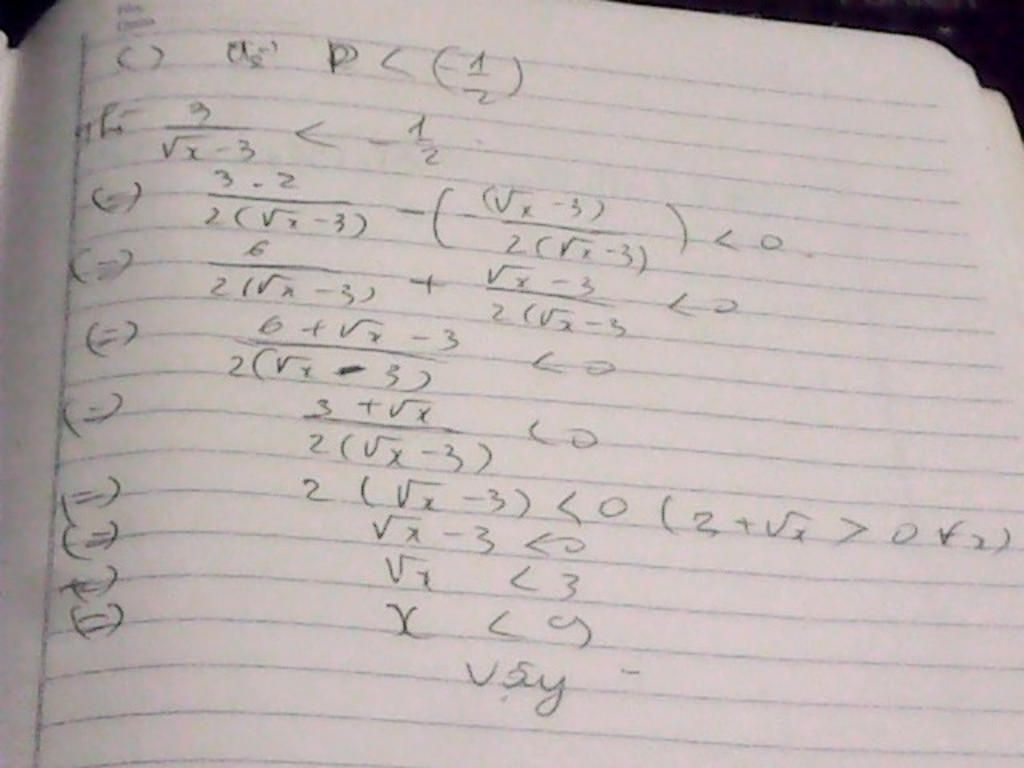 c) để P < (-1/2)
thì 3/(√x - 3) < -1/2
(=) 3.2/(2(√x - 3)) - (-(√x - 3)/(2(√x - 3))) < 0
(=) 6/(2(√x - 3)) + (√x - 3)/(2(√x - 3) < 0
(=) (6 + √x - 3)/(2(√x - 3)) < 0
(=) (3 + √x)/(2(√x - 3)) < 0
(=) 2(√x - 3) < 0 (2 + √x > 0 ∀x)
(=) √x - 3 < 0
(=) √x < 3
(=) x < 9
Vậy -